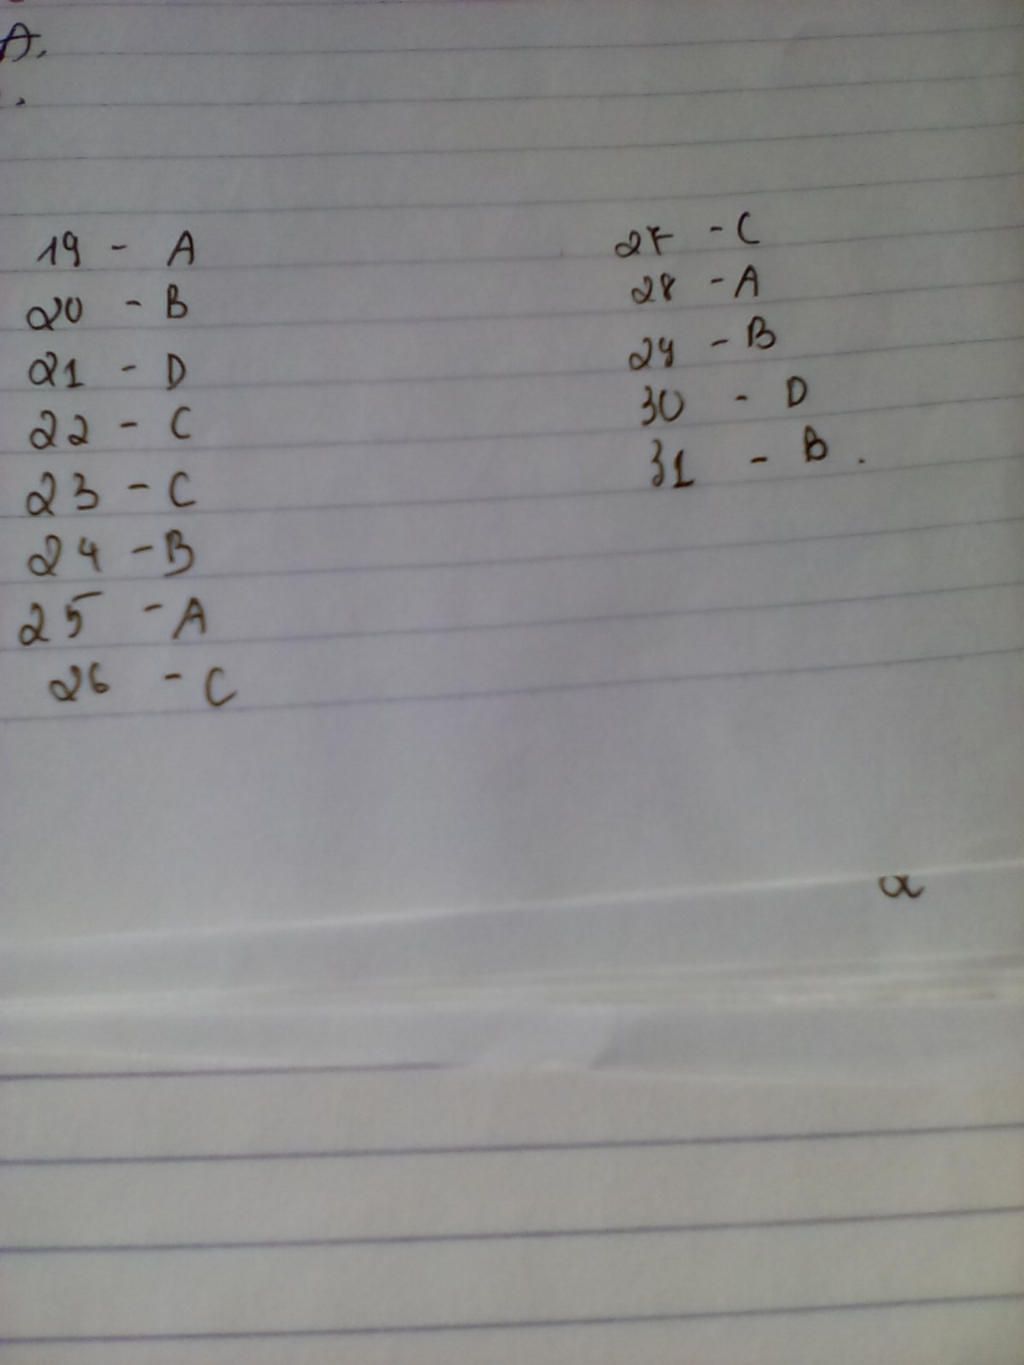 A.
.
19 - A
20 - B
21 - D
22 - C
23 - C
24 - B
25 - A
26 - C
27 - C
28 - A
29 - B
30 - D
31 - B.